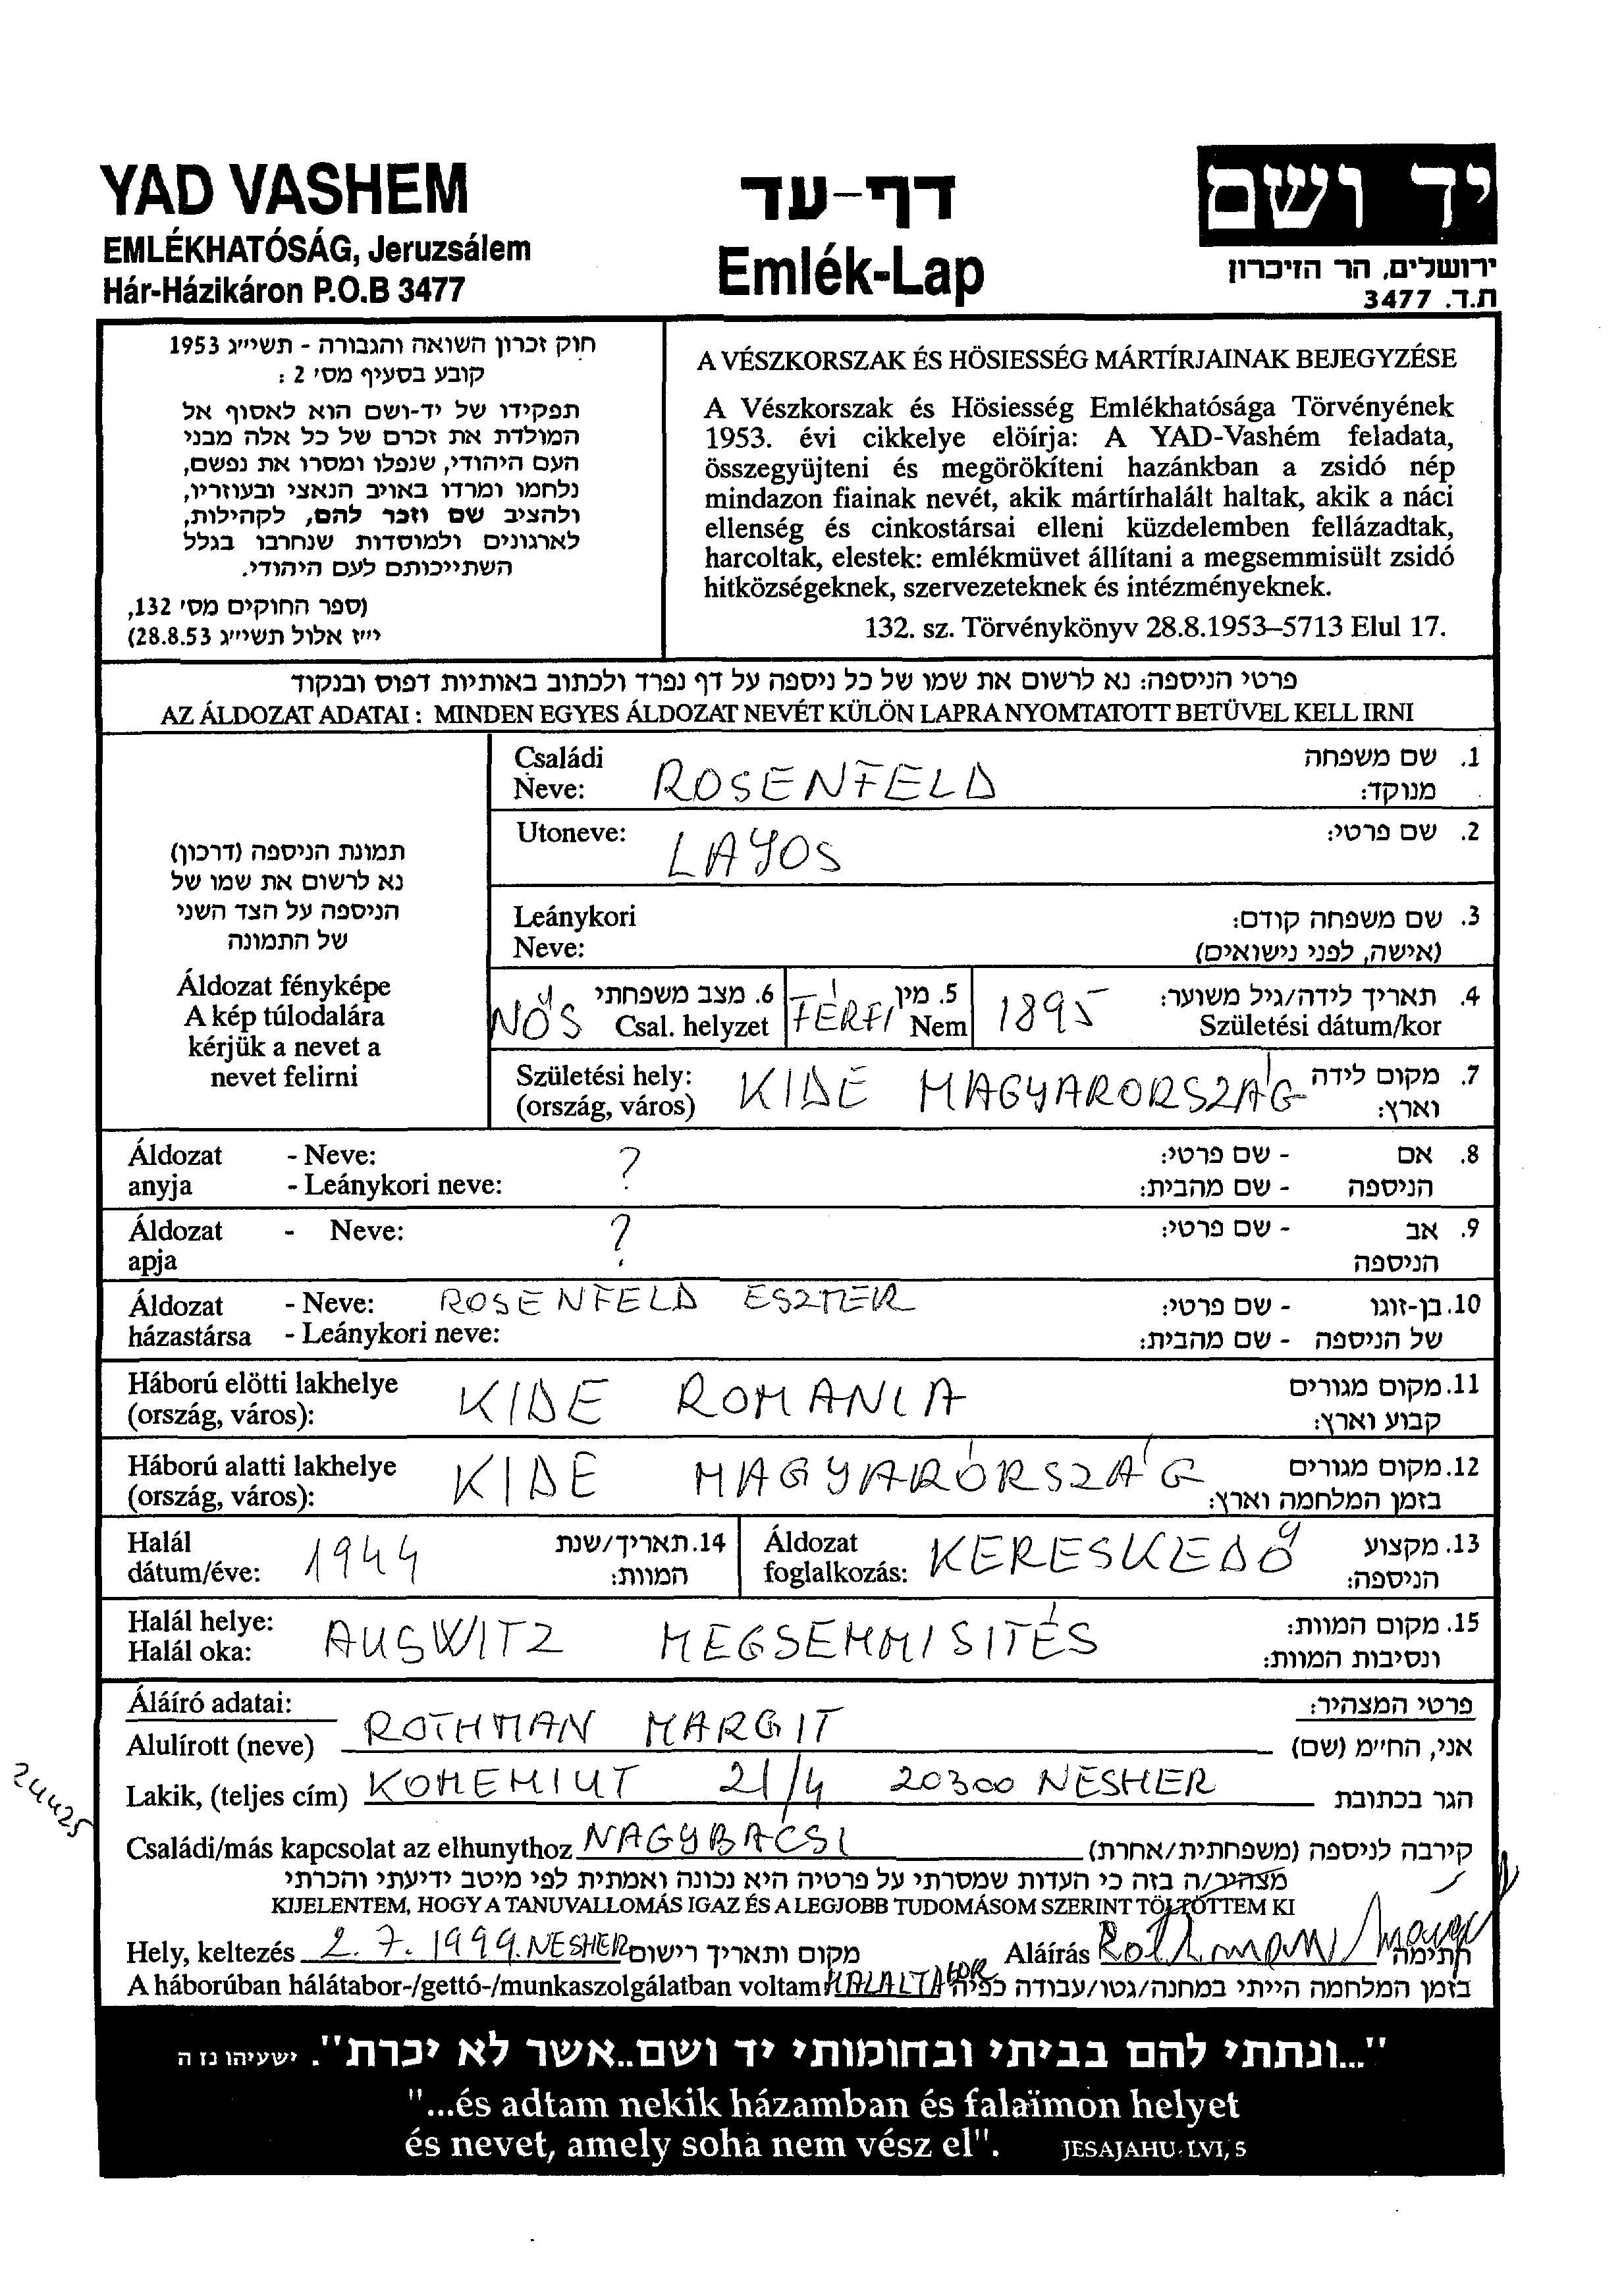 YAD VASHEM
EMLÉKHATÓSÁG, Jeruzsálem
Hár-Házikáron P.O.B 3477
דף-עד
Emlék-Lap
יד ושם
ירושלים, הר הזיכרון
ת.ד. 3477
חוק זכרון השואה והגבורה - תשי״ג 1953
קובע בסעיף מס׳ 2 :
תפקידו של יד-ושם הוא לאסוף אל
המולדת את זכרם של כל אלה מבני
העם היהודי, שנפלו ומסרו את נפשם,
נלחמו ומרדו באויב הנאצי ובעוזריו,
ולהציב שם וזכר להם, לקהילות,
לארגונים ולמוסדות שנחרבו בגלל
השתייכותם לעם היהודי.
(ספר החוקים מס׳ 132,
י״ז אלול תשי״ג 28.8.53)
A VÉSZKORSZAK ÉS HÖSIESSÉG MÁRTÍRJAINAK BEJEGYZÉSE
A Vészkorszak és Hösiesség Emlékhatósága Törvényének
1953. évi cikkelye elöírja: A YAD-Vashém feladata,
összegyüjteni és megörökíteni hazánkban a zsidó nép
mindazon fiainak nevét, akik mártírhalált haltak, akik a náci
ellenség és cinkostársai elleni küzdelemben fellázadtak,
harcoltak, elestek: emlékmüvet állítani a megsemmisült zsidó
hitközségeknek, szervezeteknek és intézményeknek.
132. sz. Törvénykönyv 28.8.1953–5713 Elul 17.
פרטי הניספה: נא לרשום את שמו של כל ניספה על דף נפרד ולכתוב באותיות דפוס ובנקוד
AZ ÁLDOZAT ADATAI : MINDEN EGYES ÁLDOZAT NEVÉT KÜLÖN LAPRA NYOMTATOTT BETÜVEL KELL IRNI
תמונת הניספה (דרכון)
נא לרשום את שמו של
הניספה על הצד השני
של התמונה
Áldozat fényképe
A kép túlodalára
kérjük a nevet a
nevet felirni
Családi Neve: ROSENFELD 1. שם משפחה מנוקד:
Utoneve: LAYOS 2. שם פרטי:
Leánykori Neve: 3. שם משפחה קודם: (אישה, לפני נישואים)
NŐS 6. מצב משפחתי Csal. helyzet FÉRFI 5. מין Nem 1895 4. תאריך לידה/גיל משוער: Születési dátum/kor
Születési hely: (ország, város) KIDE MAGYARORSZÁG 7. מקום לידה וארץ:
Áldozat anyja - Neve: - Leánykori neve: ? 8. אם הניספה - שם פרטי: - שם מהבית:
Áldozat apja - Neve: ? 9. אב הניספה - שם פרטי:
Áldozat házastársa - Neve: ROSENFELD ESZTER - Leánykori neve: 10. בן-זוגו של הניספה - שם פרטי: - שם מהבית:
Háború elötti lakhelye (ország, város): KIDE ROMANIA 11. מקום מגורים קבוע וארץ:
Háború alatti lakhelye (ország, város): KIDE MAGYARÓRSZÁG 12. מקום מגורים בזמן המלחמה וארץ:
Halál dátum/éve: 1944 14. תאריך/שנת המוות: Áldozat foglalkozás: KERESKEDŐ 13. מקצוע הניספה:
Halál helye: Halál oka: AUSWITZ MEGSEMMISITÉS 15. מקום המוות: ונסיבות המוות:
Áláíró adatai: פרטי המצהיר:
Alulírott (neve) ROTHMAN MARGIT אני, הח״מ (שם)
Lakik, (teljes cím) KOMEMIUT 21/4 20300 NESHER הגר בכתובת
24425
Családi/más kapcsolat az elhunythoz NAGYBÁCSI קירבה לניספה (משפחתית/אחרת)
מצהיר/ה בזה כי העדות שמסרתי על פרטיה היא נכונה ואמתית לפי מיטב ידיעתי והכרתי
KIJELENTEM, HOGY A TANUVALLOMÁS IGAZ ÉS A LEGJOBB TUDOMÁSOM SZERINT TÖLTÖTTEM KI
Hely, keltezés 2.7.1999. NESHER מקום ותאריך רישום Aláírás Rothman Margit חתימה
A háborúban hálátabor-/gettó-/munkaszolgálatban voltam HALALTABOR בזמן המלחמה הייתי במחנה/גטו/עבודה כפיה
"...ונתתי להם בביתי ובחומותי יד ושם..אשר לא יכרת". ישעיהו נז ה
"...és adtam nekik házamban és falaïmon helyet
és nevet, amely soha nem vész el". JESAJAHU. LVI, 5